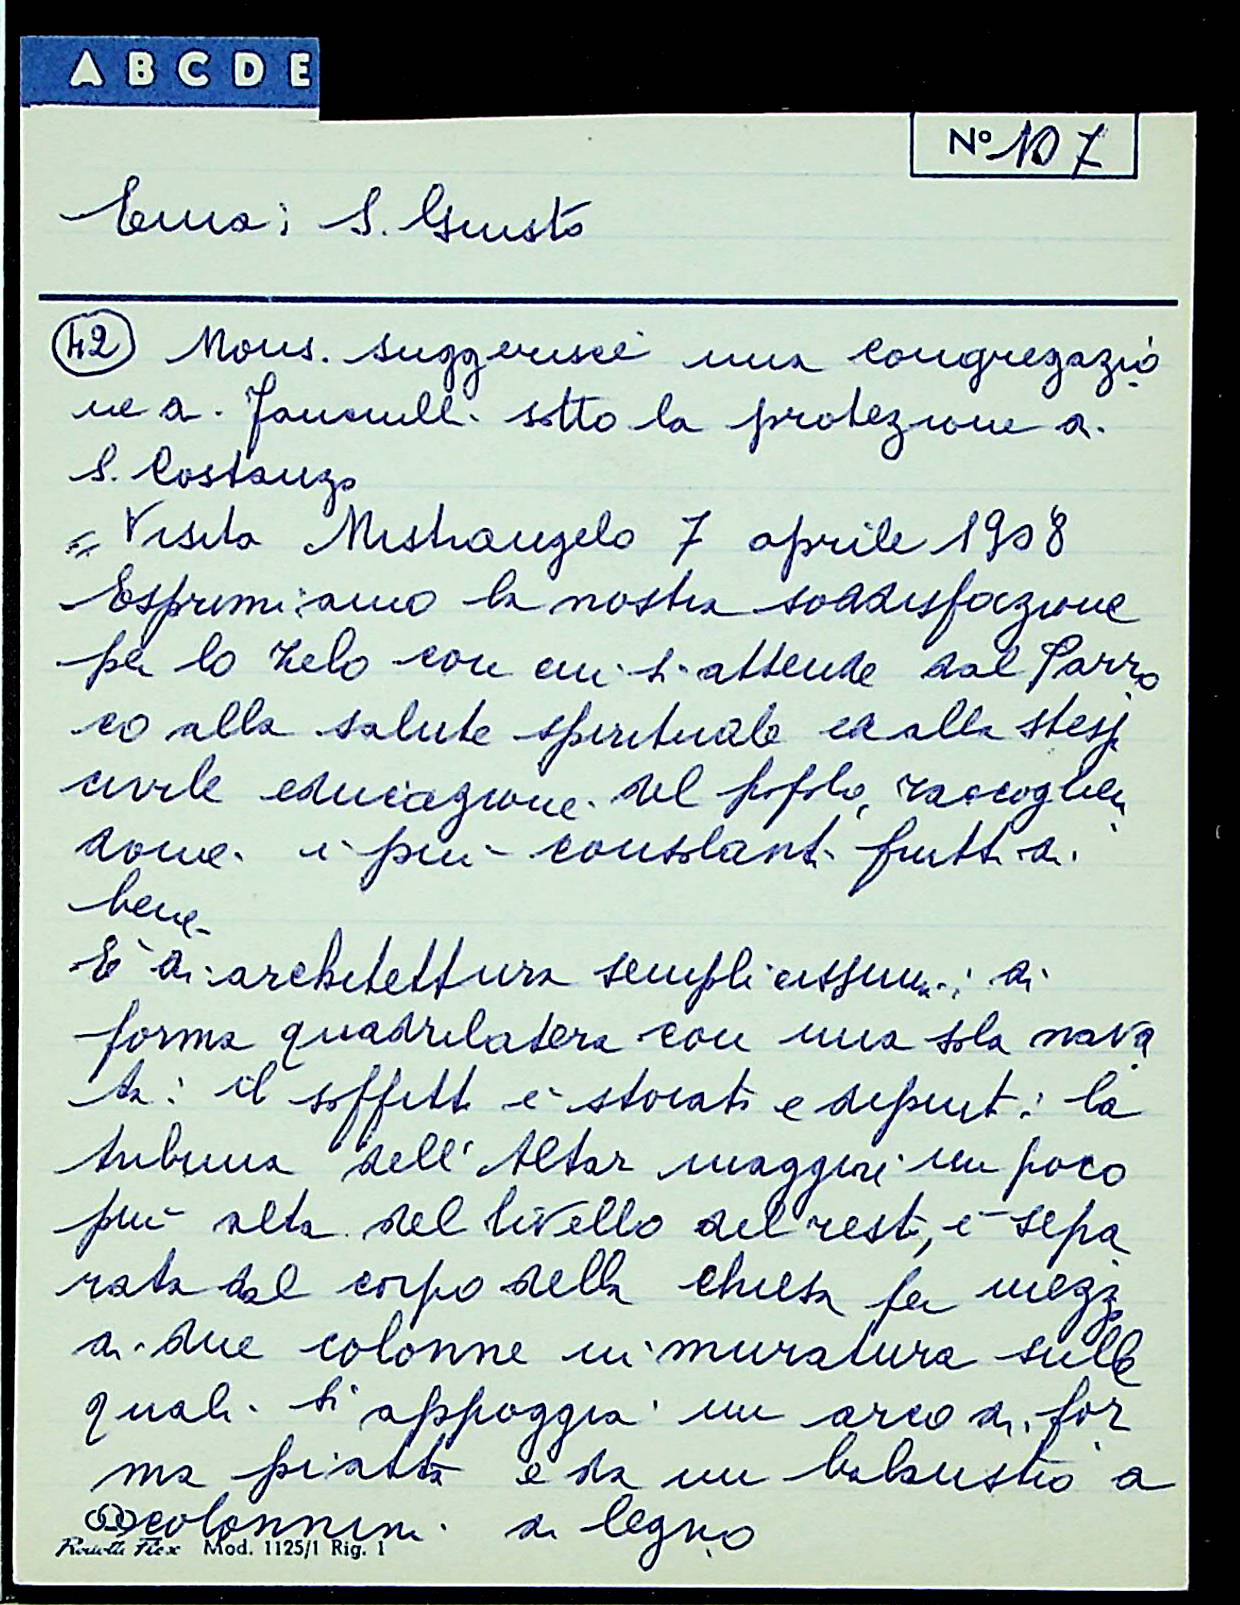 A B C D E
Nº 107
Ema: S. Giusto
42 Mons. suggerisce una congregazio
ne di Fanciulli sotto la protezione di
S. Costanzo
= Visita Mistrangelo 7 aprile 1908
Esprimiamo la nostra soddisfazione
per lo zelo con cui si attende dal Parro
co alla salute spirituale ed alla stessa
civile educazione del popolo, raccoglien
done i più consolanti frutti di
bene-
È di architettura semplicissima; di
forma quadrilatera con una sola nava
ta: il soffitto è stoiato e dipinto: la
tribuna dell'Altar maggiore un poco
più alta del livello del resto, è sepa
rata dal corpo della chiesa per mezzo
di due colonne in muratura sulle
quali si appoggia un arco di for
ma piatta e da un balaustro a
colonnini di legno
Mod. 1125/1 Rig. 1